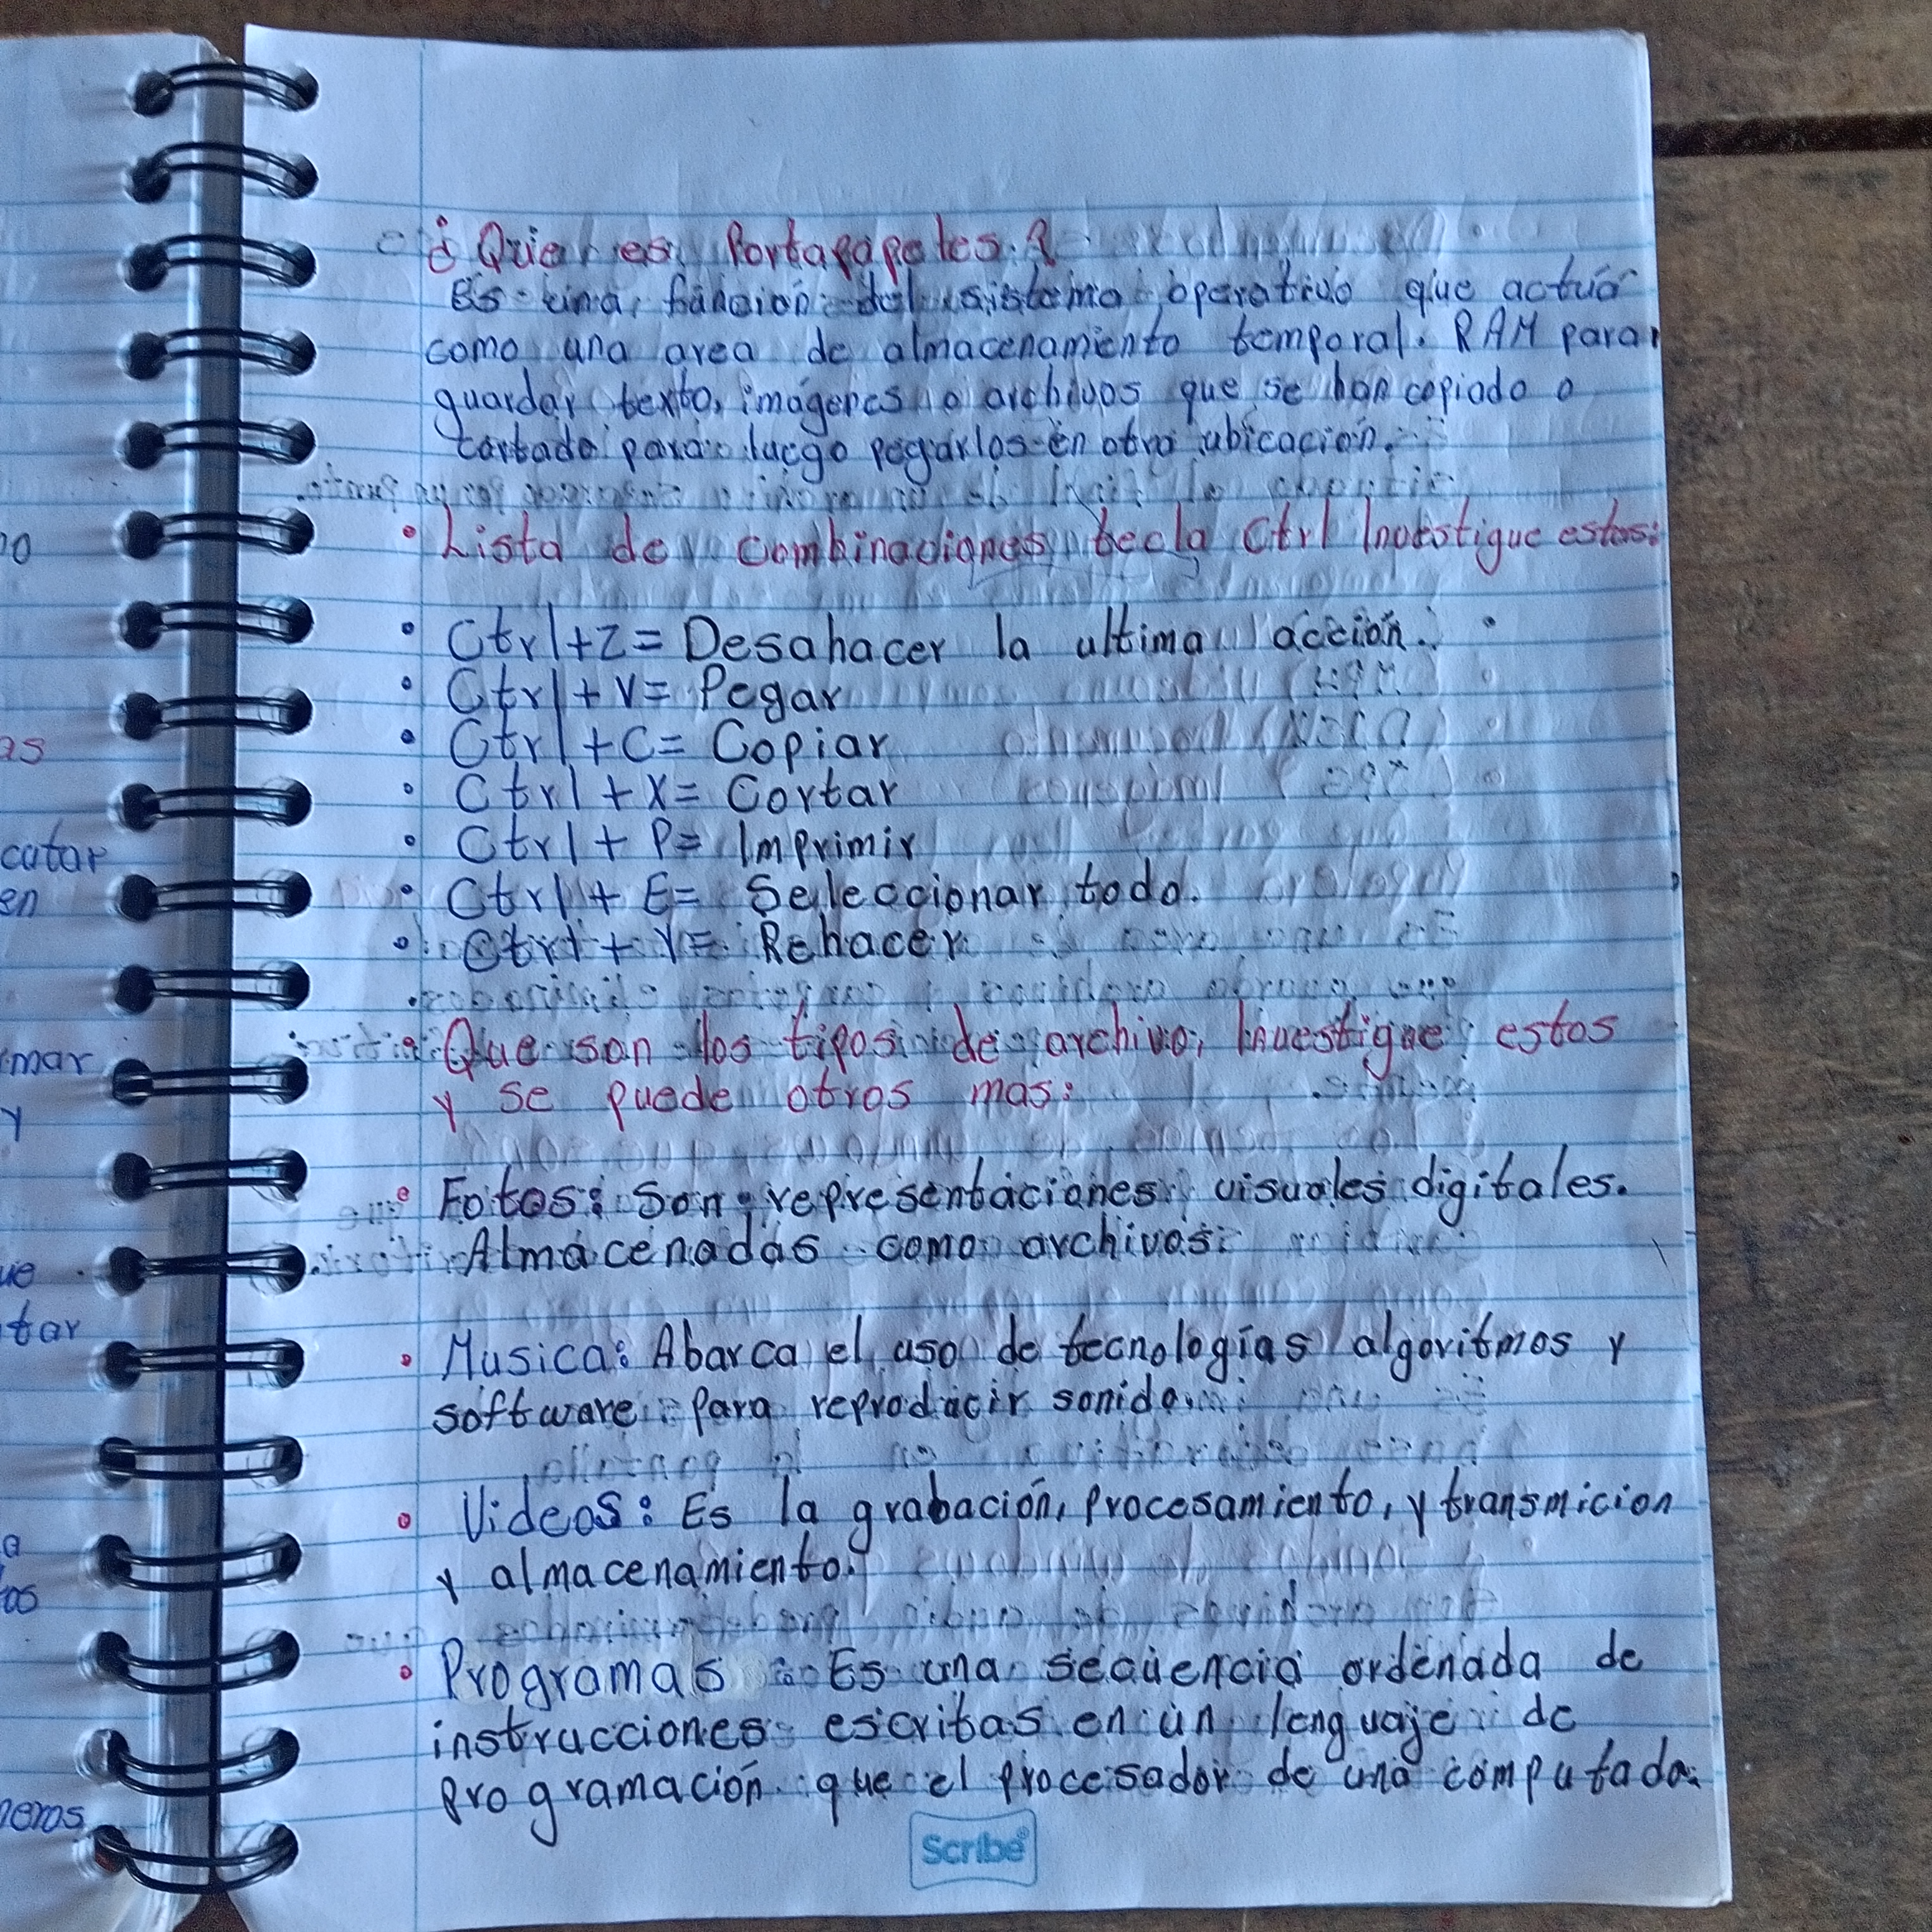 ¿Quier es Portapapeles.?
Es una función del sistema operativo que actuá
como una area de almacenamiento temporal. RAM para
guardar texto, imágenes o archivos que se han copiado o
cortado para luego pegarlos en otra ubicación.
• Lista de combinaciones tecla Ctrl Investigue estos:
• Ctrl+Z= Desahacer la ultima acción.
• Ctrl+V= Pegar
• Ctrl+C= Copiar
• Ctrl+X= Cortar
• Ctrl+P= Imprimir
• Ctrl+E= Seleccionar todo.
• Ctrl+Y= Rehacer
• Que son los tipos de archivo, Investigue estos
y se puede otros mas:
• Fotos: Son representaciones visuales digitales.
Almacenadas como archivos.
• Musica: Abarca el uso de tecnologías algoritmos y
software para reproducir sonido.
• Videos: Es la grabación, procesamiento, y transmicion
y almacenamiento.
• Programas: Es una secuencia ordenada de
instrucciones escritas en un lenguaje de
programación que el procesador de una computada.
Scribe
no
as
catar
en
mar
y
ue
tar
a
neros